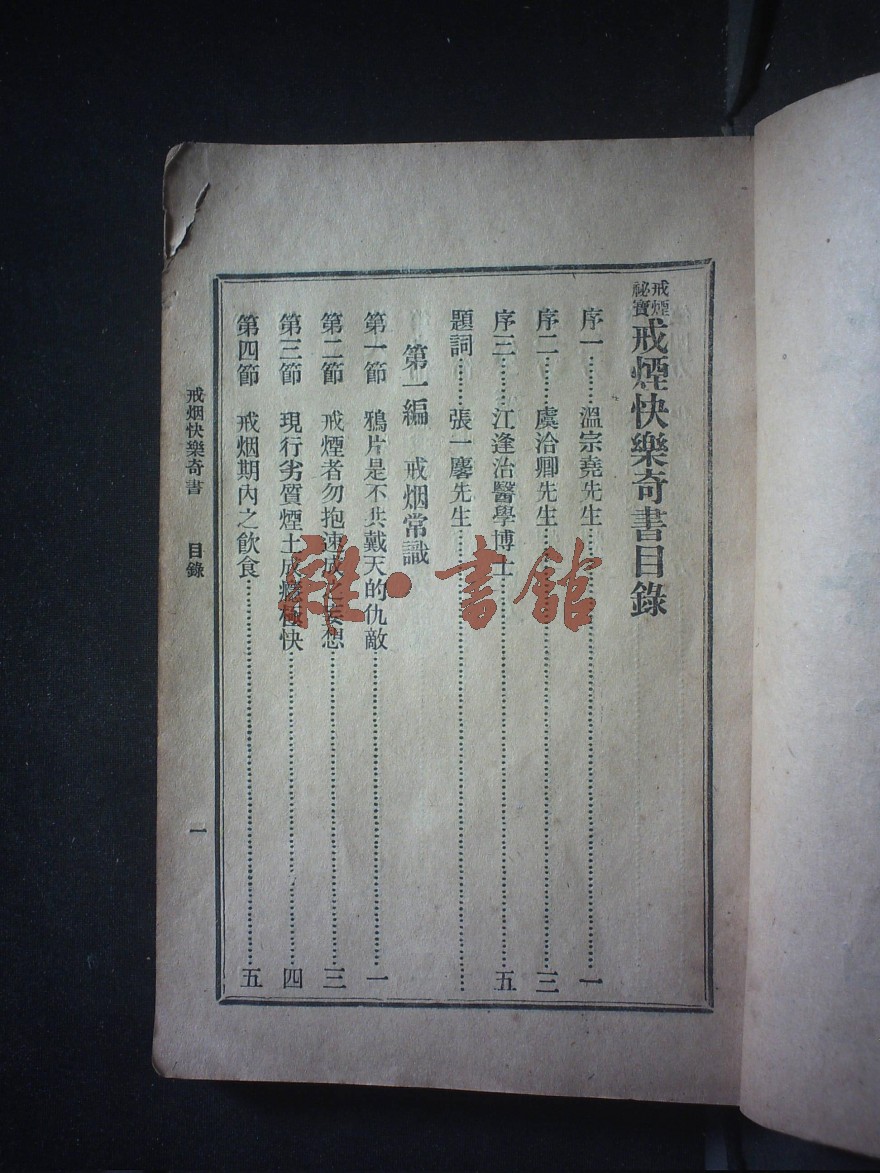 戒煙祕寶戒煙快樂奇書目錄
序一………溫宗堯先生………一
序二………虞洽卿先生………三
序三………江逢治醫學博士………五
題詞………張一麐先生………
第一編　戒烟常識
第一節　鴉片是不共戴天的仇敵………一
第二節　戒煙者勿抱速成之妄想………三
第三節　現行劣質煙土成癮極快………四
第四節　戒烟期內之飲食………五
戒烟快樂奇書　目錄　一
雜·書館